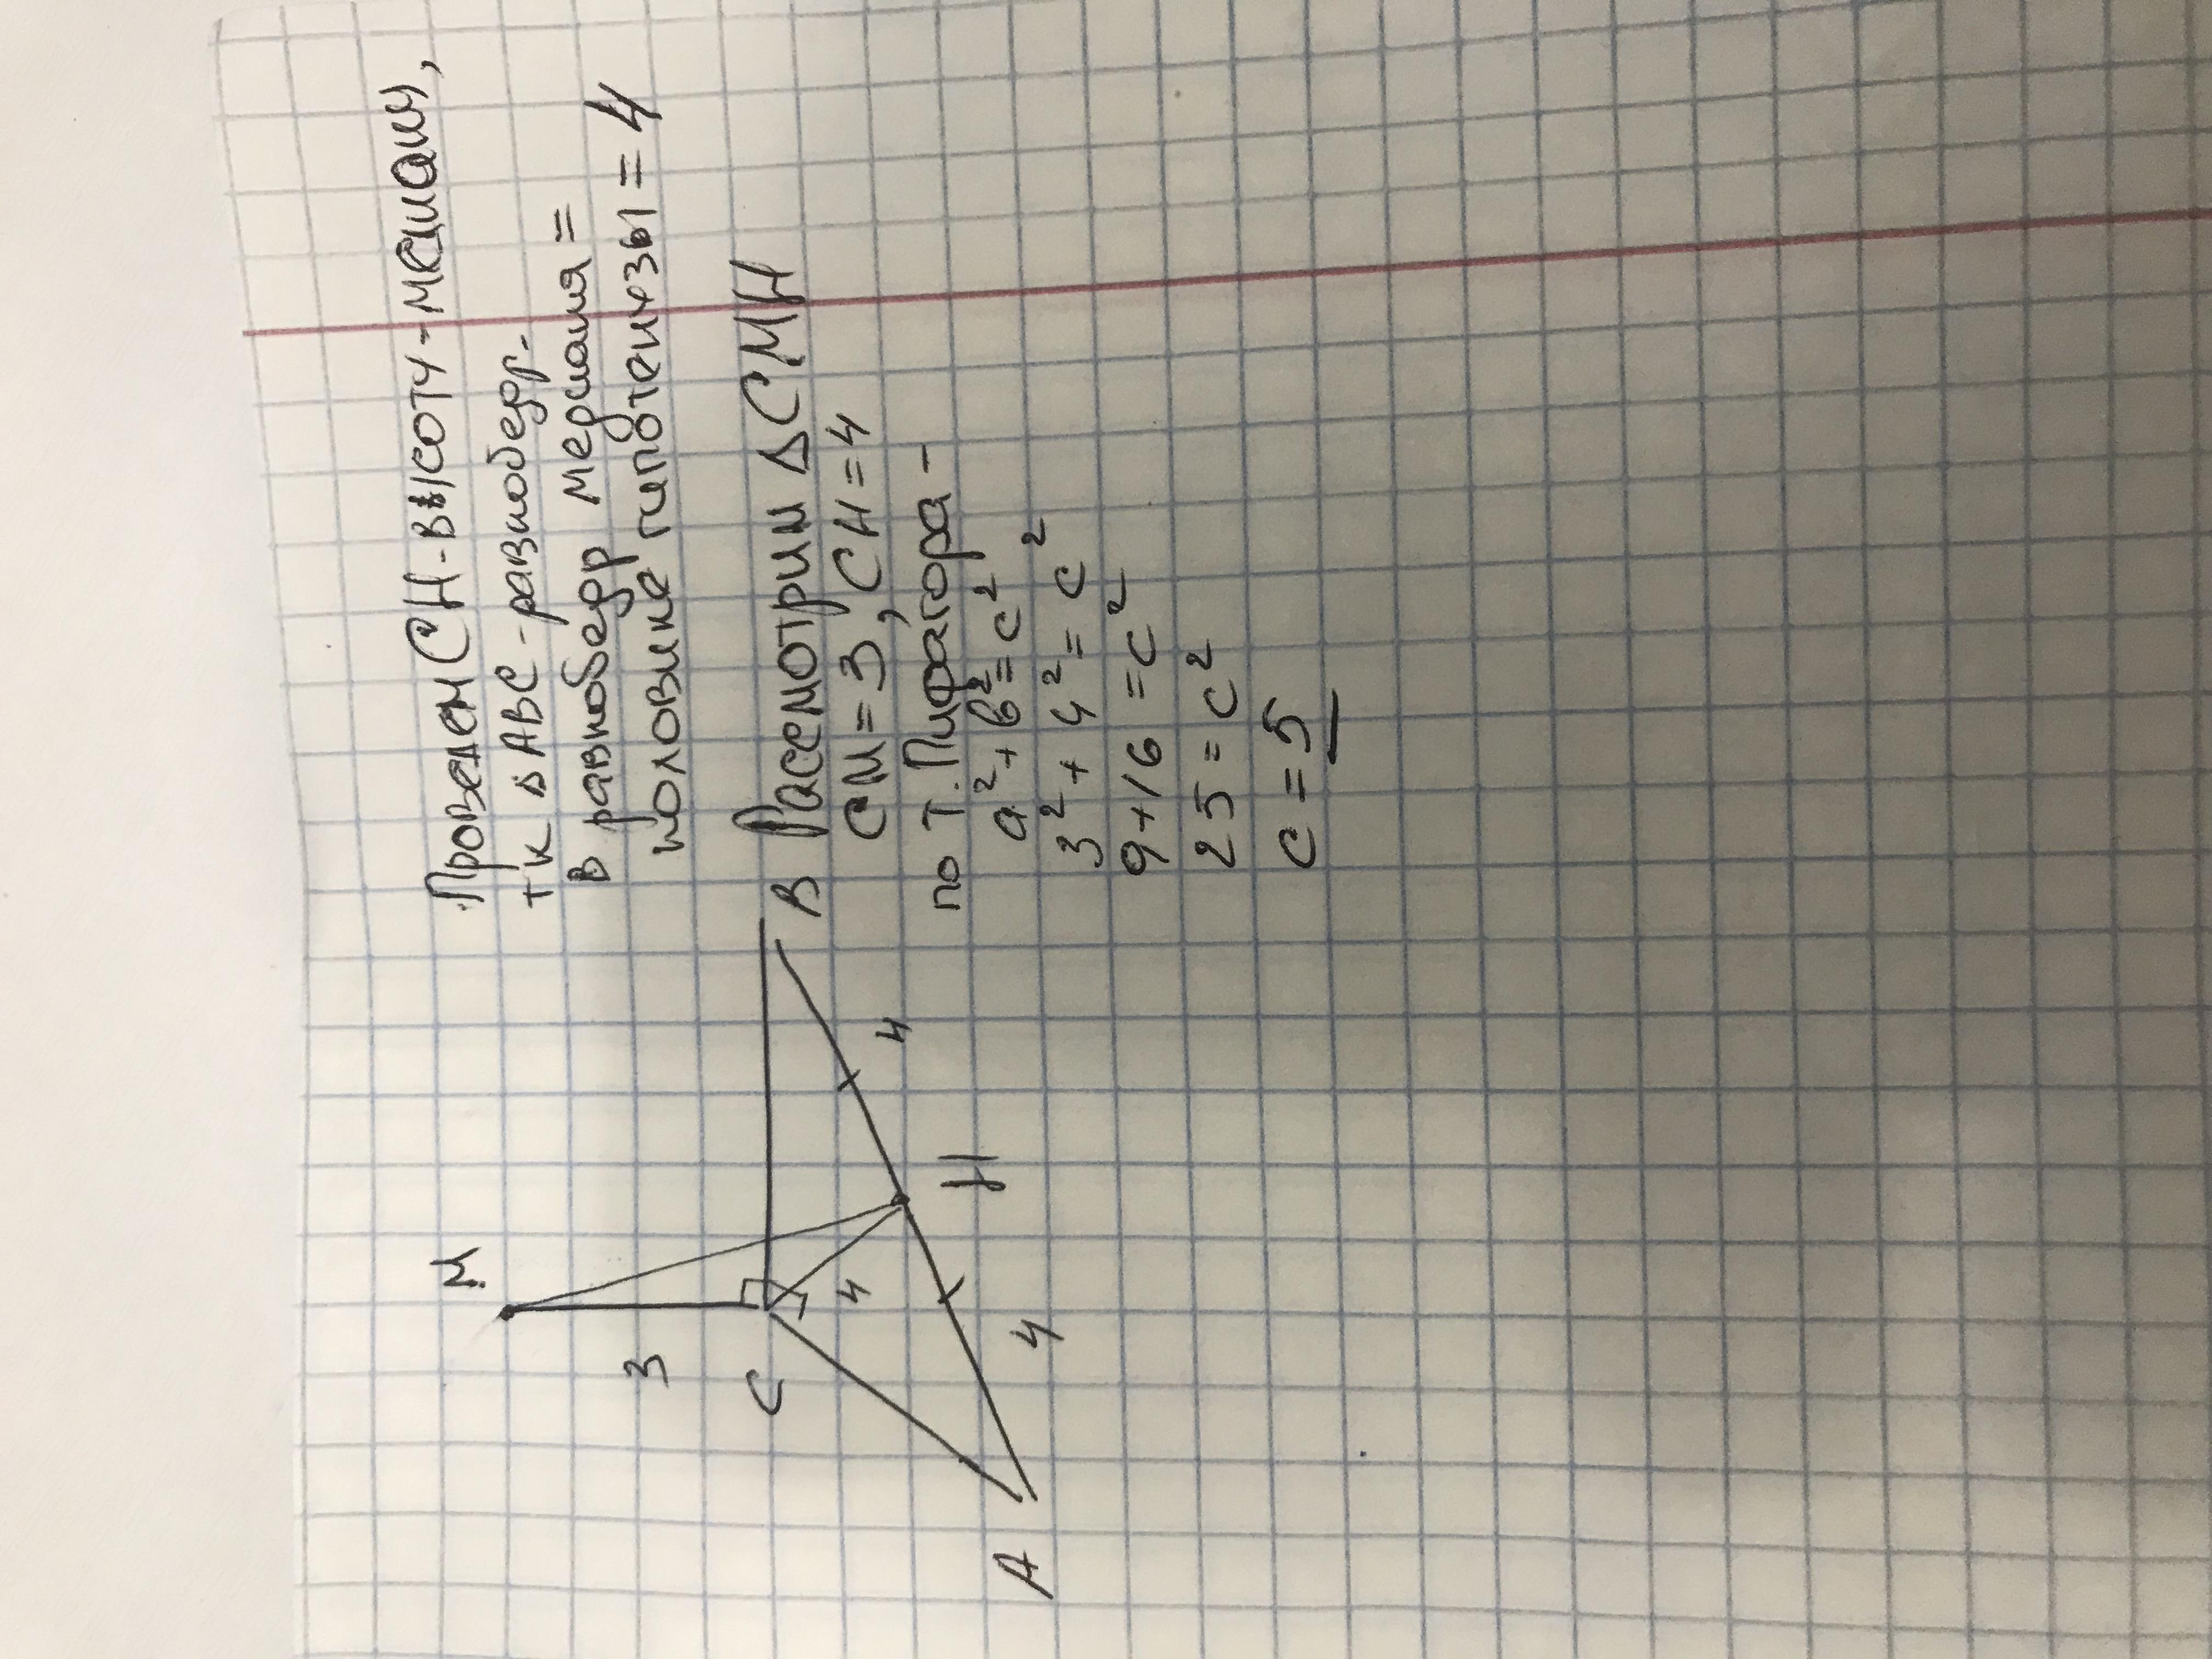 Проведем СН-высоту-медиану,
тк △ АВС -равнобедр.
в равнобедр медиана =
половине гипотенузы = 4
Рассмотрим △ СМН
СМ = 3, СН = 4
по т. Пифагора -
a² + b² = c²
3² + 4² = c²
9 + 16 = c²
25 = c²
c = 5
М
3
С
4
В
4
Н
4
А